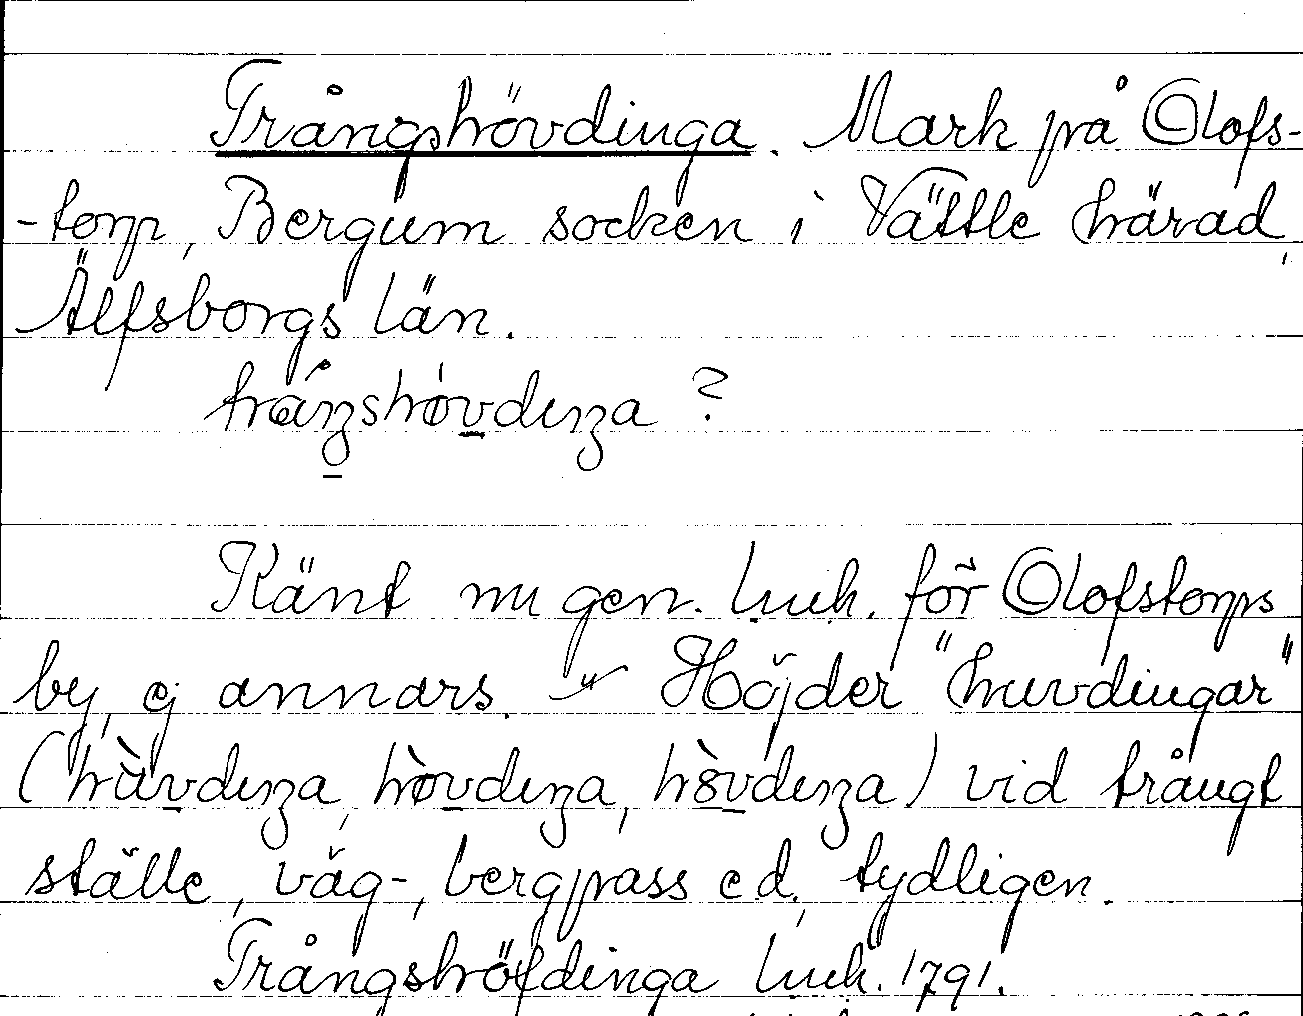 Trångshövdinga. Mark på Olofs-
-torp, Bergum socken i Vättle härad,
Älfsborgs län.
tråŋshövdeŋa ?
Känt nu gen. luh. för Olofstorps
by, ej annars. Höjder "huvdingar"
(hùvdeŋa, hòvdeŋa, hövdeŋa) vid trångt
ställe, väg-, bergpass e d, tydligen.
Trångshöfdinga luh. 1791.